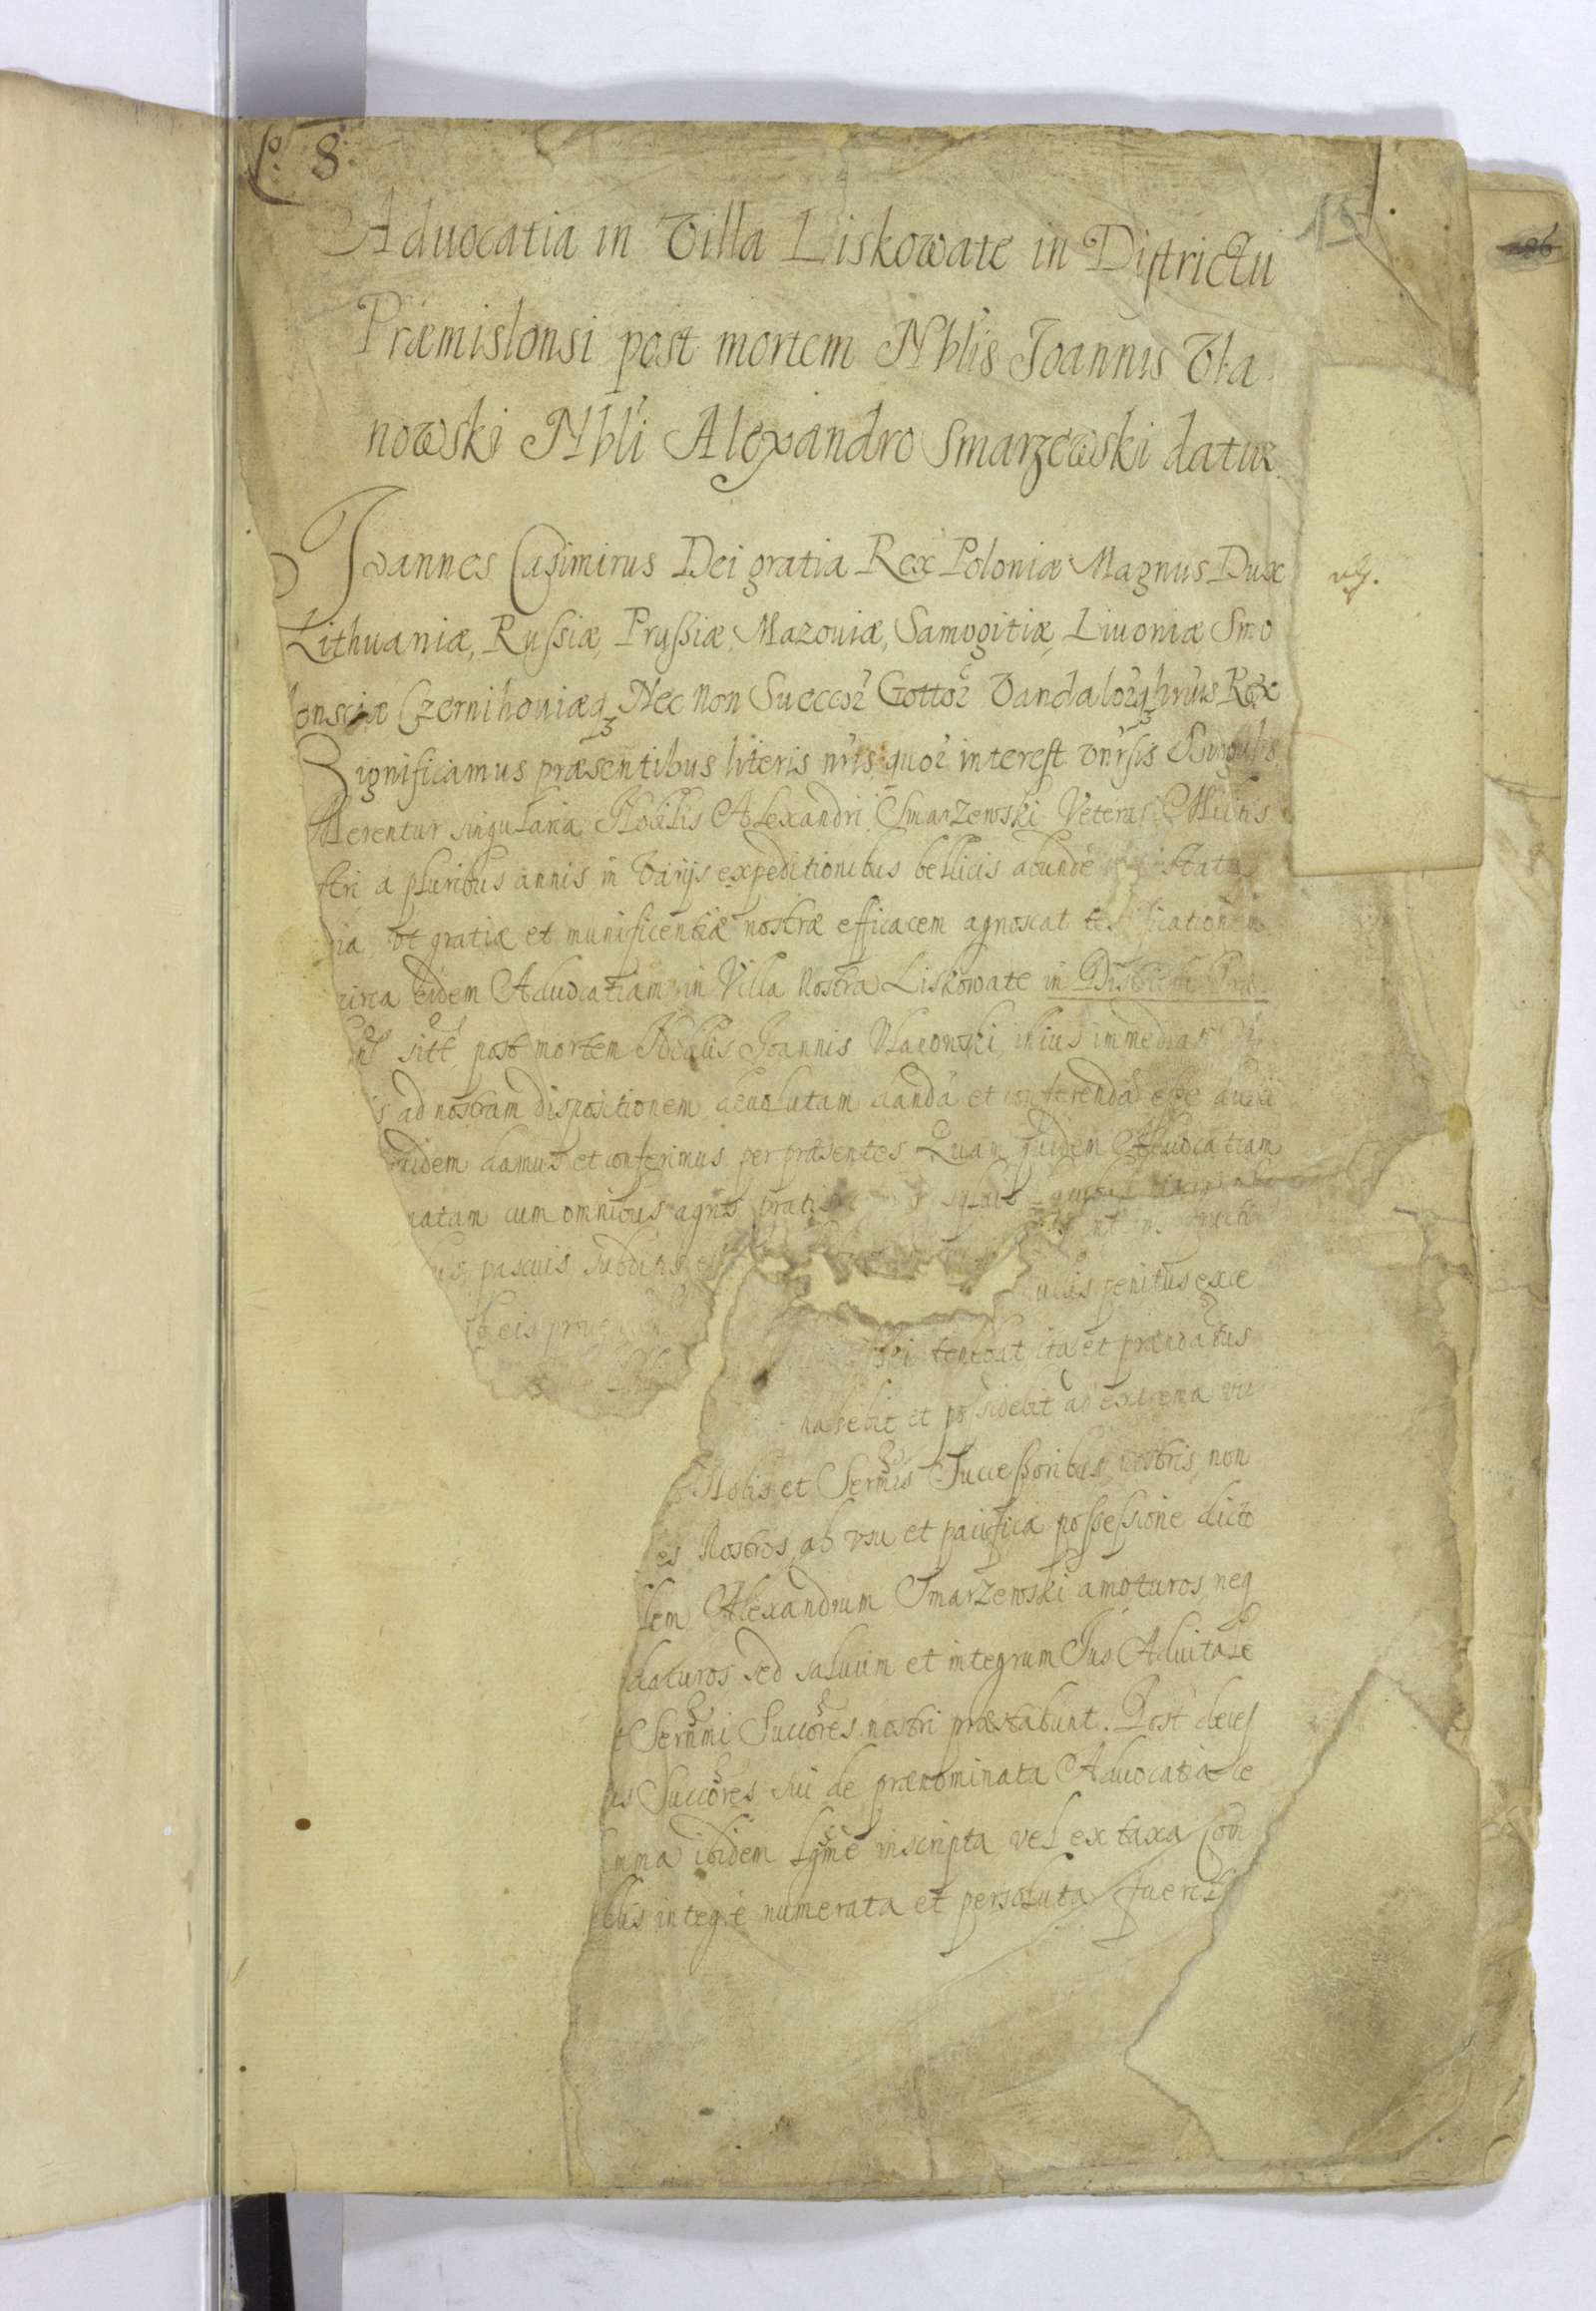 fo. 8.
15
Aduocatia in Villa Liskowate in Districtu
Præmislonsi post mortem Nblis Joannis Vla
nowski Nbli Alexandro Smarzewski datur.
Joannes Casimirus Dei gratia Rex Poloniæ Magnus Dux
Lithuaniæ, Russiæ, Prussiæ, Mazouiæ, Samogitiæ, Liuoniæ Smo
lonsciæ Czernihouiæq3 Nec non Suecor Gottor Vandalorq3 hrius Rex
Significamus præsentibus literis nris quor interest vnrsis & singulis
Merentur singularia Nobilis Alexandri Smarzewski Veterani Militis
stri a pluribus annis in Varijs expeditionibus bellicis abunde
ia, vt gratiæ et munificentiæ nostræ efficacem agnoscat
circa eidem Aduocatiam in Villa Nostra Liskowate in Districtu
sitt post mortem Nobilis Joannis Vlanowski, illius immediat
s ad nostram dispositionem deuolutam danda et conferenda esse duxi
uidem damus et conferimus per præsentes Quam quidem Aduocatiam
natam cum omnibus agris pratis
us, pascuis, subditis
b eis ullis penitus exce
tenebat ita et prændatus
habebit et possidebit ad extrema vi
Nobis et Sermis Successoribus nostris non
es Nostros, ab vsu et pacifica possessione dicto
lem Alexandrum Smarzewski amoturos, neq
daturos sed saluum et integrum Jus Aduitale
t Sermi Succores nostri præstabunt. Post deces
us Succores sui de prænominata Aduocatia ce
mma ibidem lgme inscripta, vel ex taxa Com
bus integre numerata et persoluta fuerit